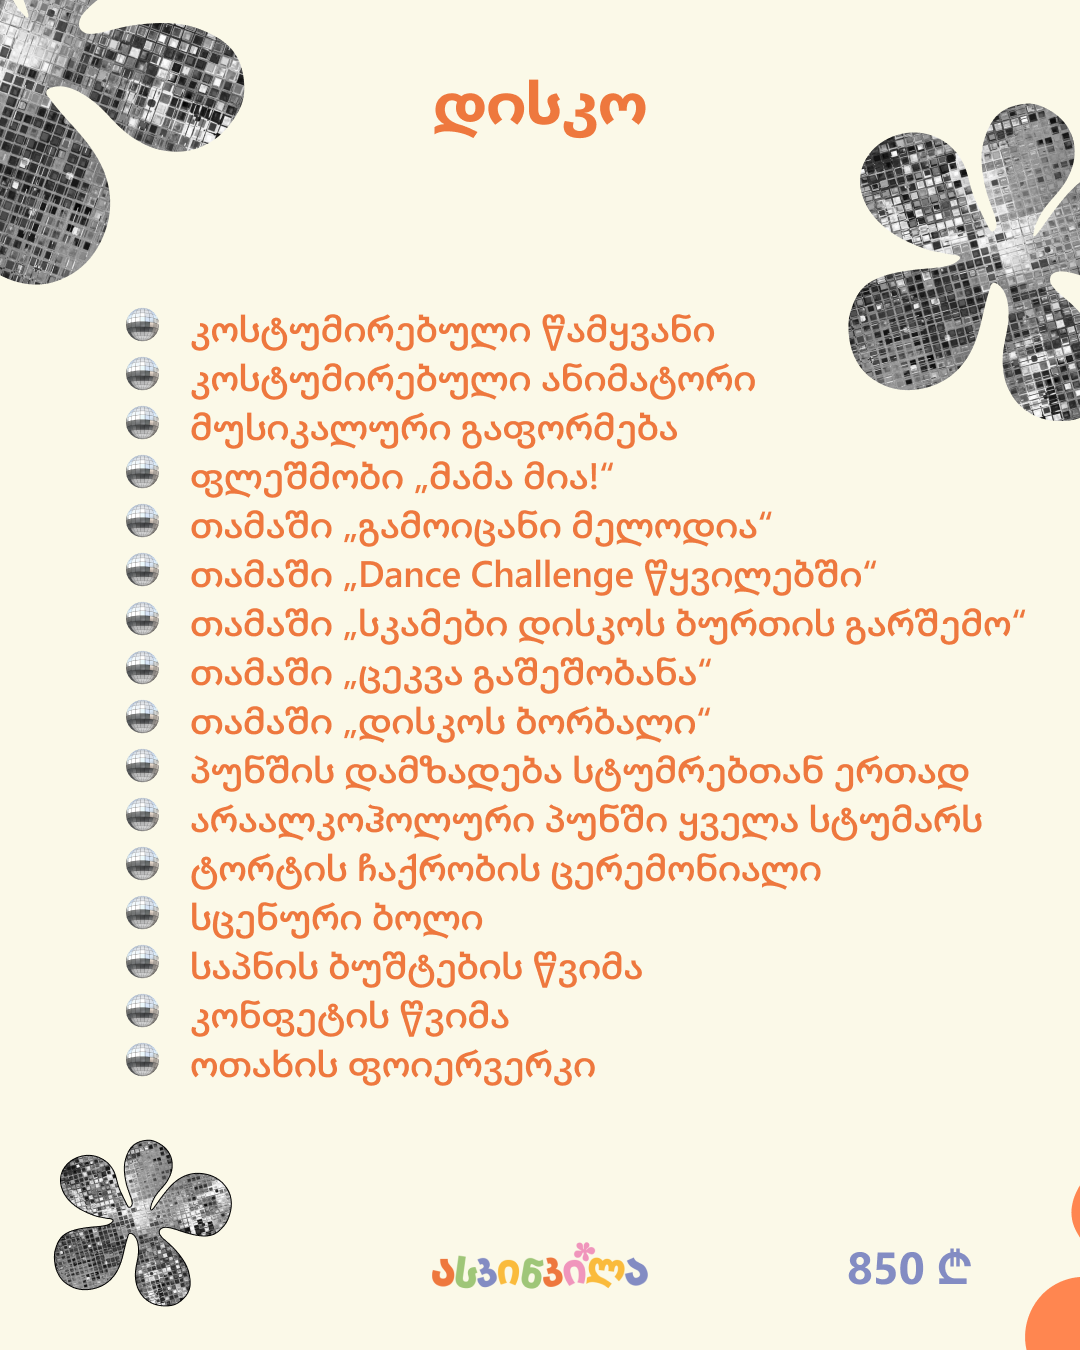 დისკო
კოსტუმირებული წამყვანი
კოსტუმირებული ანიმატორი
მუსიკალური გაფორმება
ფლეშმობი „მამა მია!“
თამაში „გამოიცანი მელოდია“
თამაში „Dance Challenge წყვილებში“
თამაში „სკამები დისკოს ბურთის გარშემო“
თამაში „ცეკვა გაშეშობანა“
თამაში „დისკოს ბორბალი“
პუნშის დამზადება სტუმრებთან ერთად
არაალკოჰოლური პუნში ყველა სტუმარს
ტორტის ჩაქრობის ცერემონიალი
სცენური ბოლი
საპნის ბუშტების წვიმა
კონფეტის წვიმა
ოთახის ფოიერვერკი
ასკინკილა
850 ₾